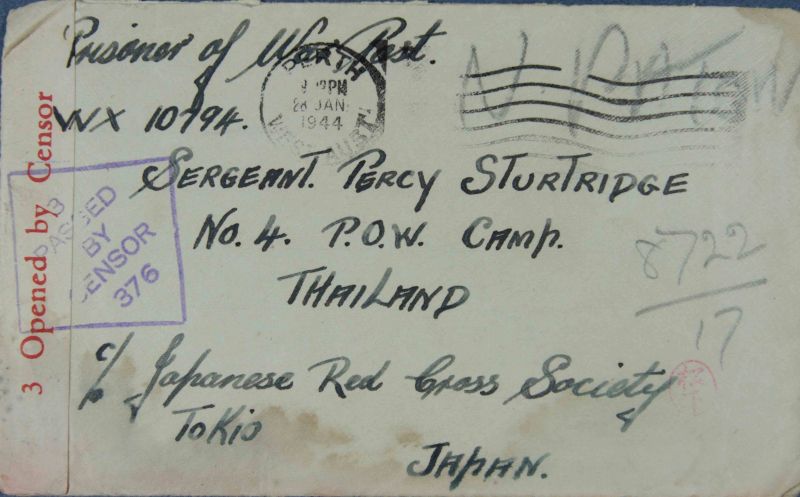 Prisoner of War Post.
WX 10794.
SERGEANT. PERCY STURTRIDGE
No. 4. P.O.W. CAMP.
THAILAND
c/o Japanese Red Cross Society
TOKIO
JAPAN.
PERTH
PM
28 JAN
1944
WEST. AUST
3 Opened by Censor
3
PASSED
BY
CENSOR
376
8722
17